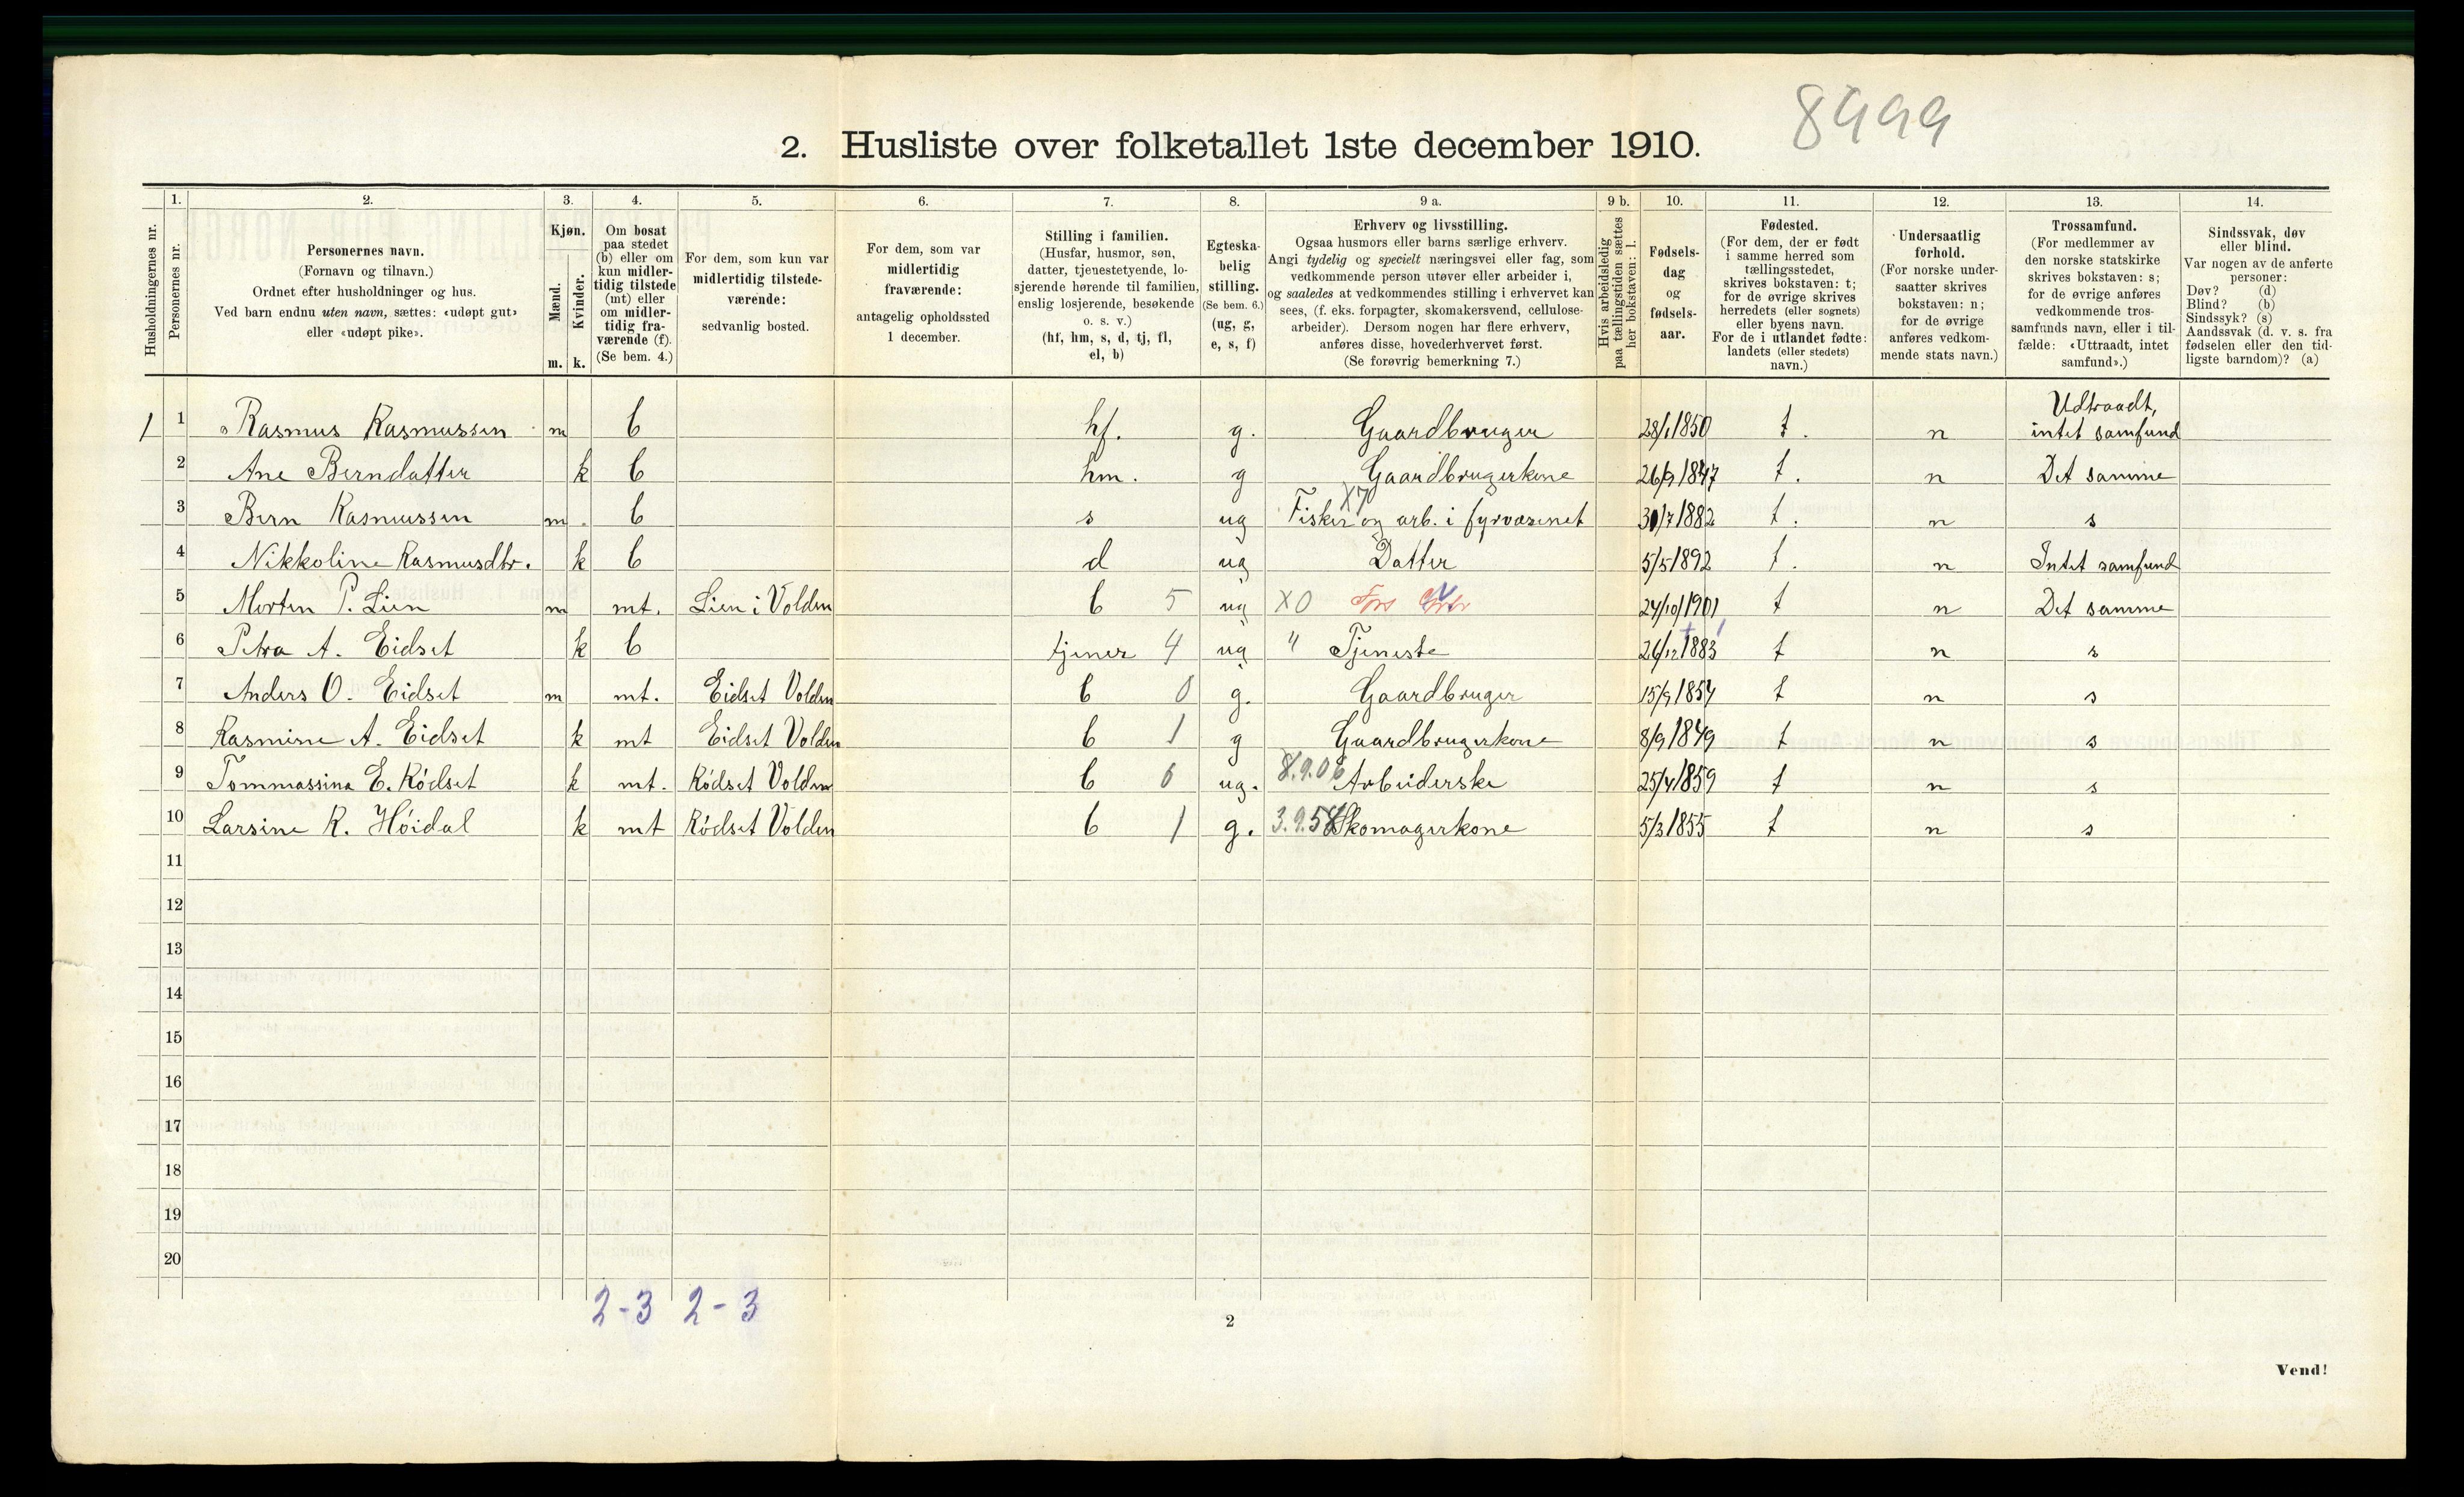 8999
2. Husliste over folketallet 1ste december 1910.
Husholdningernes nr.
1.
Personernes nr.
2.
Personernes navn.
(Fornavn og tilnavn.)
Ordnet efter husholdninger og hus.
Ved barn endnu uten navn, sættes: «udøpt gut»
eller «udøpt pike».
3.
Kjøn.
Mænd.
Kvinder.
m. k.
4.
Om bosat
paa stedet
(b) eller om
kun midler-
tidig tilstede
(mt) eller
om midler-
tidig fra-
værende (f).
(Se bem. 4.)
5.
For dem, som kun var
midlertidig tilstede-
værende:
sedvanlig bosted.
6.
For dem, som var
midlertidig
fraværende:
antagelig opholdssted
1 december.
7.
Stilling i familien.
(Husfar, husmor, søn,
datter, tjenestetyende, lo-
sjerende hørende til familien,
enslig losjerende, besøkende
o. s. v.)
(hf, hm, s, d, tj, fl,
el, b)
8.
Egteska-
belig
stilling.
(Se bem. 6.)
(ug, g,
e, s, f)
9 a.
Erhverv og livsstilling.
Ogsaa husmors eller barns særlige erhverv.
Angi tydelig og specielt næringsvei eller fag, som
vedkommende person utøver eller arbeider i,
og saaledes at vedkommendes stilling i erhvervet kan
sees, (f. eks. forpagter, skomakersvend, cellulose-
arbeider). Dersom nogen har flere erhverv,
anføres disse, hovederhvervet først.
(Se forøvrig bemerkning 7.)
9 b.
Hvis arbeidsledig
paa tællingstiden sættes
her bokstaven: l.
10.
Fødsels-
dag
og
fødsels-
aar.
11.
Fødested.
(For dem, der er født
i samme herred som
tællingsstedet,
skrives bokstaven: t;
for de øvrige skrives
herredets (eller sognets)
eller byens navn.
For de i utlandet fødte:
landets (eller stedets)
navn.)
12.
Undersaatlig
forhold.
(For norske under-
saatter skrives
bokstaven: n;
for de øvrige
anføres vedkom-
mende stats navn.)
13.
Trossamfund.
(For medlemmer av
den norske statskirke
skrives bokstaven: s;
for de øvrige anføres
vedkommende tros-
samfunds navn, eller i til-
fælde: «Uttraadt, intet
samfund».)
14.
Sindssvak, døv
eller blind.
Var nogen av de anførte
personer:
Døv? (d)
Blind? (b)
Sindssyk? (s)
Aandssvak (d. v. s. fra
fødselen eller den tid-
ligste barndom)? (a)
1 1 Rasmus Rasmussen m b hf. g. Gaardbruger 28/1 1850 t. n Udtraadt, intet samfund
2 Ane Berndatter k b hm. g Gaardbrugerkone 26/9 1847 t. n Det samme
3 Bern Rasmussen m b s ug X7 Fisker og arb. i fyrvæsenet 30/7 1882 t. n s
4 Nikkoline Rasmusdtr. k b d ug Datter 5/5 1892 t. n Intet samfund
5 Morten P. Lien m mt. Lien i Volden b 5 ug X0 24/10 1901 t n Det samme
6 Petra A. Eidset k b tjener 4 ug " Tjeneste 26/12 1883 t n s
7 Anders O. Eidset m mt. Eidset Volden b 0 g. Gaardbruger 15/9 1854 t n s
8 Rasmine A. Eidset k mt Eidset Volden b 1 g Gaardbrugerkone 8/9 1849 t n s
9 Tommassina E. Rödset k mt. Rödset Volden b 6 ug. 8.9.06 Arbeiderske 25/4 1859 t n s
10 Larsine R. Höidal k mt Rödset Volden b 1 g. 3.9.58 Skomagerkone 5/3 1855 t n s
11
12
13
14
15
16
17
18
19
20
2-3 2-3
2
Vend!